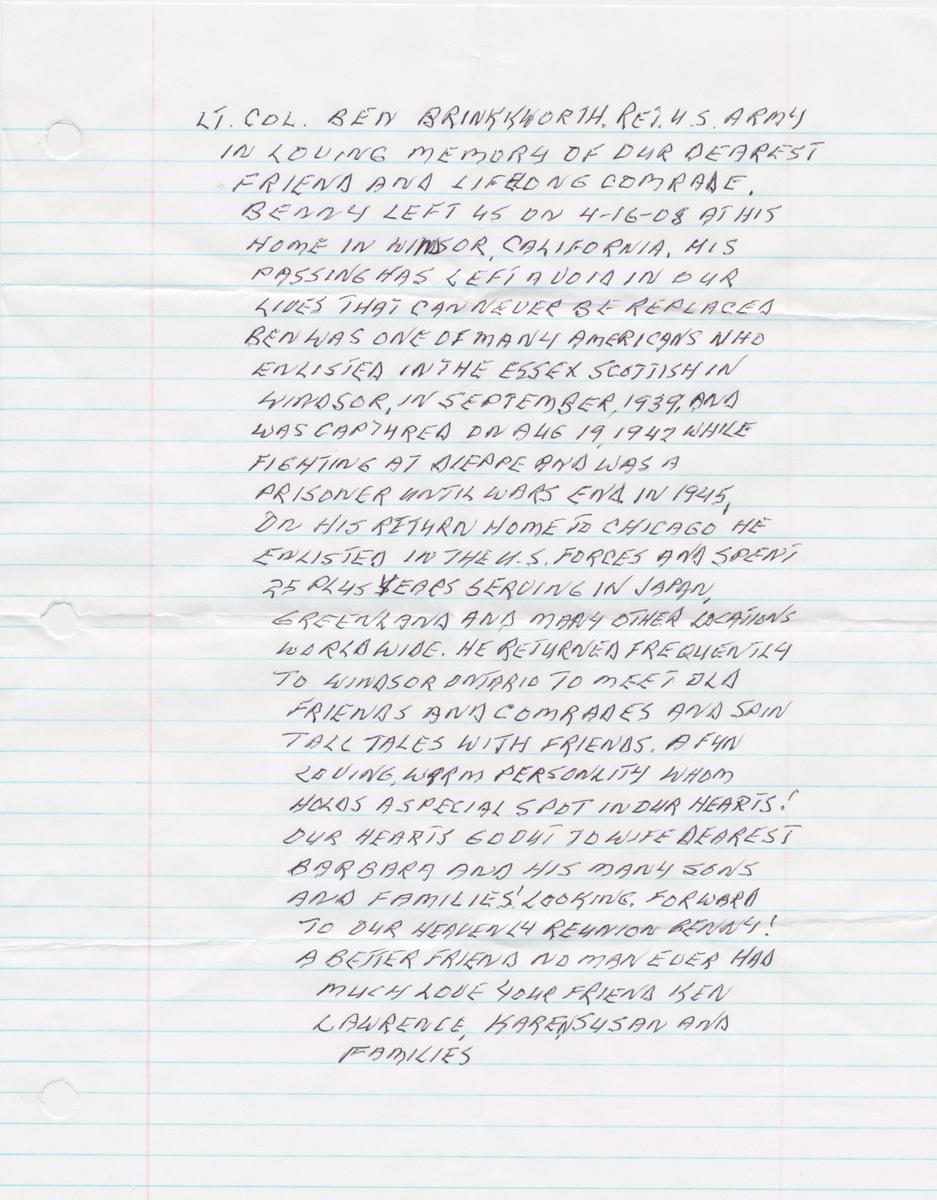 LT. COL. BEN BRINKKWORTH. RET. U.S. ARMY
IN LOVING MEMORY OF OUR DEAREST
FRIEND AND LIFELONG COMRADE.
BENNY LEFT US ON 4-16-08 AT HIS
HOME IN WINDSOR, CALIFORNIA. HIS
PASSING HAS LEFT A VOID IN OUR
LIVES THAT CAN NEVER BE REPLACED
BEN WAS ONE OF MANY AMERICANS WHO
ENLISTED IN THE ESSEX SCOTTISH IN
WINDSOR, IN SEPTEMBER, 1939, AND
WAS CAPTURED ON AUG 19, 1942 WHILE
FIGHTING AT DIEPPE AND WAS A
PRISONER UNTIL WARS END IN 1945,
ON HIS RETURN HOME TO CHICAGO HE
ENLISTED IN THE U.S. FORCES AND SPENT
25 PLUS YEARS SERVING IN JAPAN,
GREENLAND AND MANY OTHER LOCATIONS
WORLD WIDE. HE RETURNED FREQUENTLY
TO WINDSOR ONTARIO TO MEET OLD
FRIENDS AND COMRADES AND SPIN
TALL TALES WITH FRIENDS. A FUN
LOVING, WARM PERSONLITY WHOM
HOLDS A SPECIAL SPOT IN OUR HEARTS!
OUR HEARTS GO OUT TO WIFE DEAREST
BARBARA AND HIS MANY SONS
AND FAMILIES! LOOKING. FORWARD
TO OUR HEAVENLY REUNION BENNY!
A BETTER FRIEND NO MAN EVER HAD
MUCH LOVE YOUR FRIEND KEN
LAWRENCE, KAREN, SUSAN AND
FAMILIES